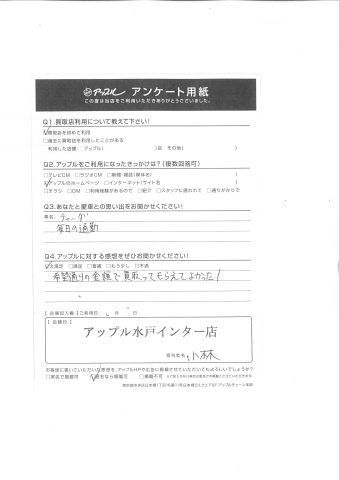 アップル アンケート用紙
この度は当店をご利用いただきありがとうございました。
Q1.買取店利用について教えて下さい!
買取店を初めて利用
□過去に買取店を利用したことがある
利用した店舗: アップル( )店 その他( )
Q2.アップルをご利用になったきっかけは?(複数回答可)
□テレビCM □ラジオCM □新聞・雑誌(媒体名/ )
アップルのホームページ □インターネット(サイト名 )
□チラシ □DM □利用経験があるので □紹介 □スタッフに誘われて □通りがかりで
Q3.あなたと愛車との思い出をお聞かせください!
車名:
毎日の通勤
Q4.アップルに対する感想をぜひお聞かせください!
大満足 □満足 □普通 □もう少し □不満
希望通りの金額で買取ってもらえてよかった!
【店舗記入欄】ご利用日: 月 日
【店舗印】
アップル水戸インター店
担当者名 小林
お客様に書いていただいた感想を、アップルHPや広告に掲載させていただいてもよろしいでしょうか?
□実名で掲載可 匿名なら掲載可 □掲載不可